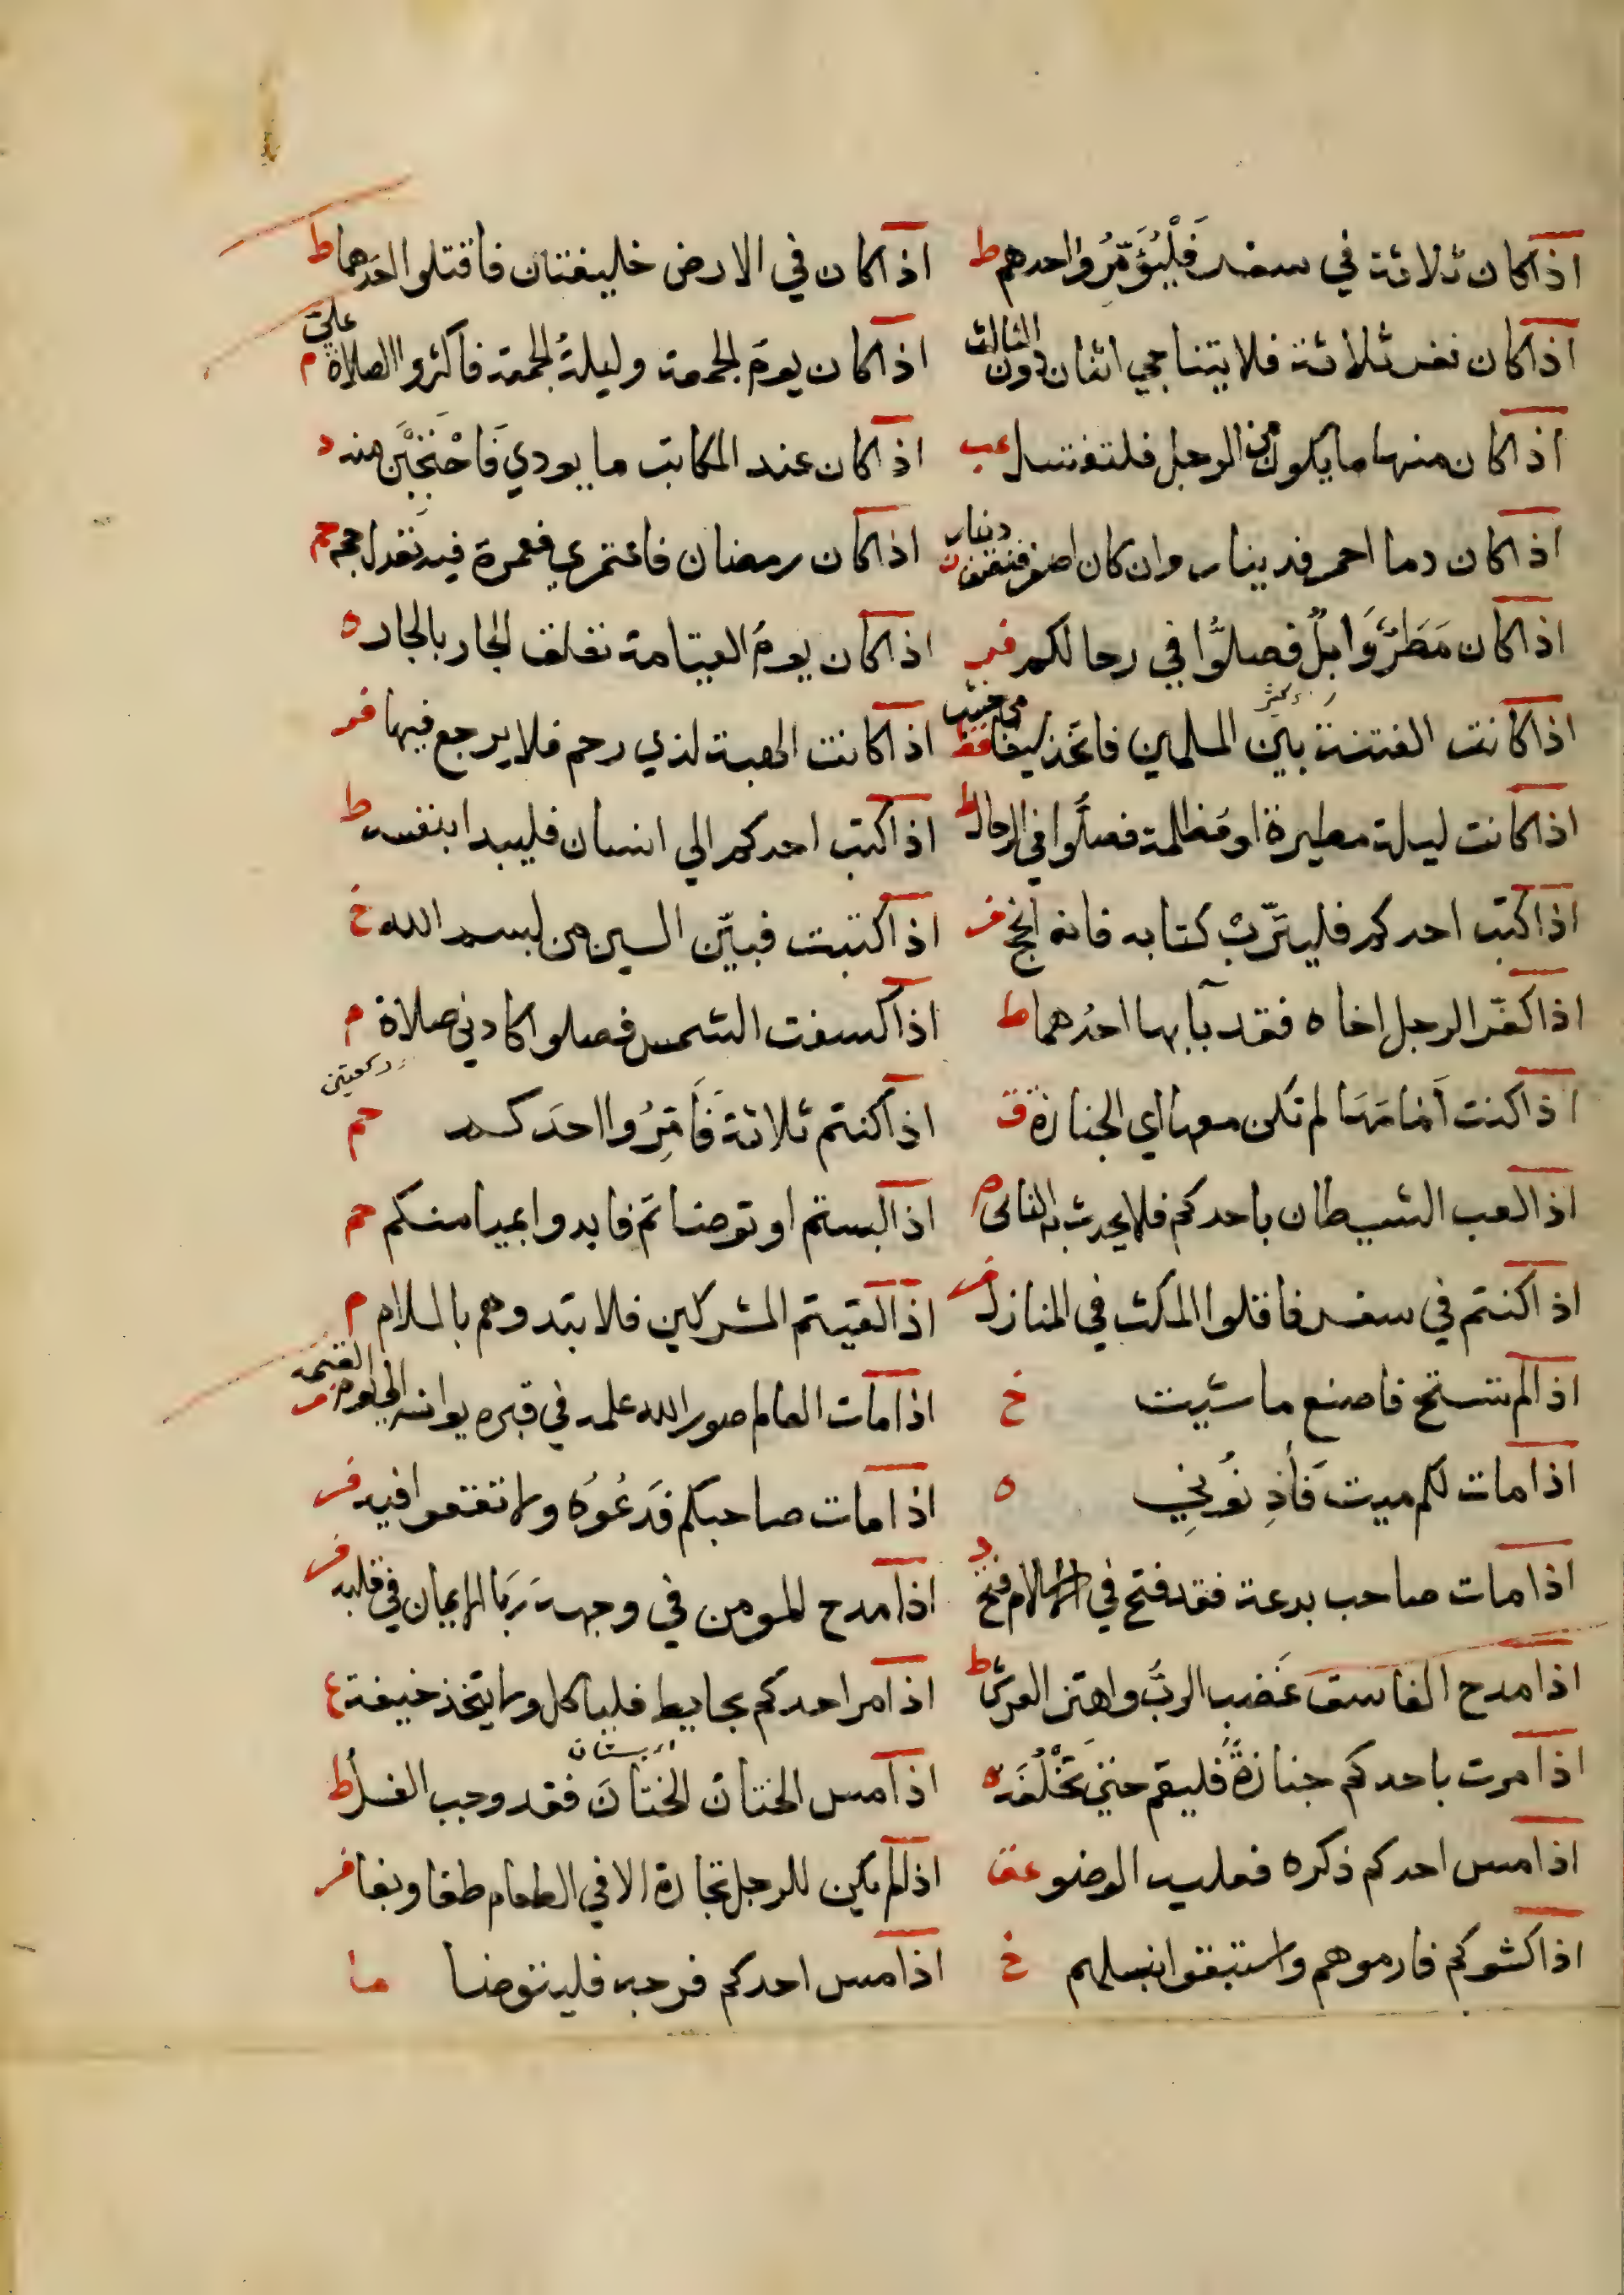 اذا كان ثلاثة في سفر فَلْيُؤَمِّرُوا احدهم ط
اذا كان في الارض خليفتان فاقتلوا احدهما ط
اذا كان نفر ثلاثة فلا يتناجي اثنان دون الثالث
اذا كان يومُ الجمعة وليلةُ الجمعة فاكثروا الصلاة علي م
اذا كان منها ما يكون من الرجل فلتغتسل عب
اذا كان عند المكاتب ما يودي فَاحْتَجِبْنَ منه د
اذا كان دما احمر فدينار وان كان اصفر فنصف دينار ت
اذا كان رمضان فاعتمري فعمرة فيه تعدل حجة حم
اذا كان مَطَرٌ وَابِلٌ فصلُّوا في رحالكم
اذا كان يومُ القيامة تعلق الجار بالجار ه
اذا كانت الفتنة بين المسلمين فاتخذ سيفا من خشب
اذا كانت الهبة لذي رحم فلا يرجع فيها
اذا كانت ليلة مطيرة او مُظلمة فصلُّوا في الرحال ط
اذا كتب احدكم الي انسان فليبدا بنفسه ط
اذا كتب احدكم فليترّبْ كتابه فانه انجح فر
اذا كتبت فبيّن السين من بسم الله خ
اذا كفّر الرجل اخاه فقد بآ بها احدُهما ط
اذا كسفت الشمس فصلوا كادني صلاة م
ركعتين
اذا كنت اَمَامَهَا لم تكن معها اي الجنازة ق
اذا كنتم ثلاثةً فَأَمِّرُوا احَدكم حم
اذا لعب الشيطان باحدكم فلا يحدث به الناس م
اذا لبستم او توضاتم فابدوا بميامنكم حم
اذا كنتم في سفر فاقلوا المكث في المنازل فر
اذا لقيتم المشركين فلا تبتدوهم بالسلام م
اذا لم تستح فاصنع ما شيت خ
اذا مات العالم صور الله علمه في قبره يوانسه الي يوم القيمه فر
اذا مات لكم ميت فَأذِنُونِي ه
اذا مات صاحبكم فَدَعُوُه ولا تقعوا فيه فر
اذا مات صاحب بدعة فقد فتح في الاسلام فتح
اذا مدح المومن في وجهه رَبَا الايمان في قلبه فر
اذا مدح الفاسق غَضِب الربُّ واهتز العرش ط
اذا مر احدكم بحايط فلياكل ولا يتخذ خبيفة
بستان
اذا مرت باحدكم جنازةٌ فليقم حتي تُخْلُفَه ه
اذا مس الختان الختانَ فقد وجب الغسل ط
اذا مس احدكم ذكره فعليه الوضو عق
اذا لم يكن للرجل تجارة الا في الطعام طغا وبغا فر
اذا كثبوكم فارموهم واستبقوا نبلهم خ
اذا مس احدكم فرجه فليتوضا ما